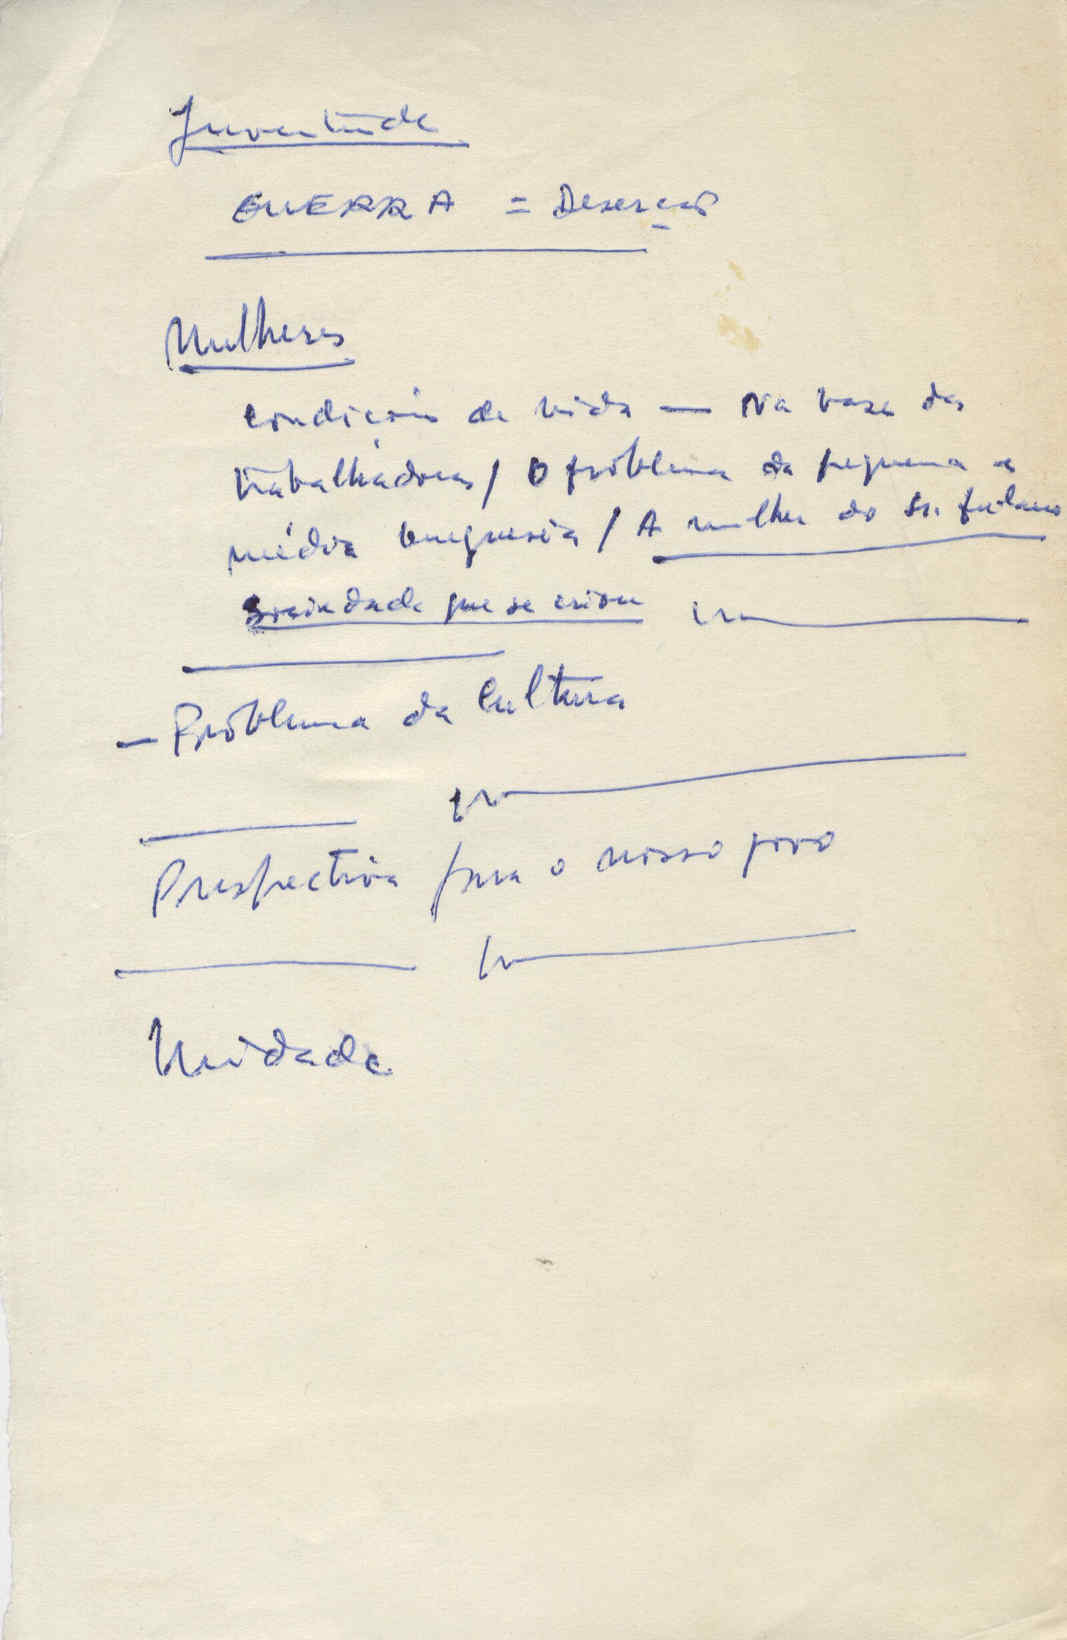 Juventude
GUERRA = Deserção
Mulheres
condições de vida — Na base das
trabalhadoras / O problema da pequena e
média burguesia / A mulher do Sr. fulano
Sociedade que se criou
— Problema da Cultura
Prespectiva para o nosso povo
Unidade